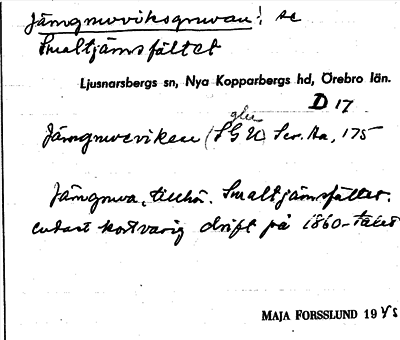 Järngruveviksgruvan! se
Smaltjärnsfältet
Ljusnarsbergs sn, Nya Kopparbergs hd, Örebro län.
D 17
Järngruveviken (SGU) Ser. Aa, 175
Järngruva, tillhör. Smaltjärnsfältet.
endast kortvarig drift på 1860-talet
MAJA FORSSLUND 19